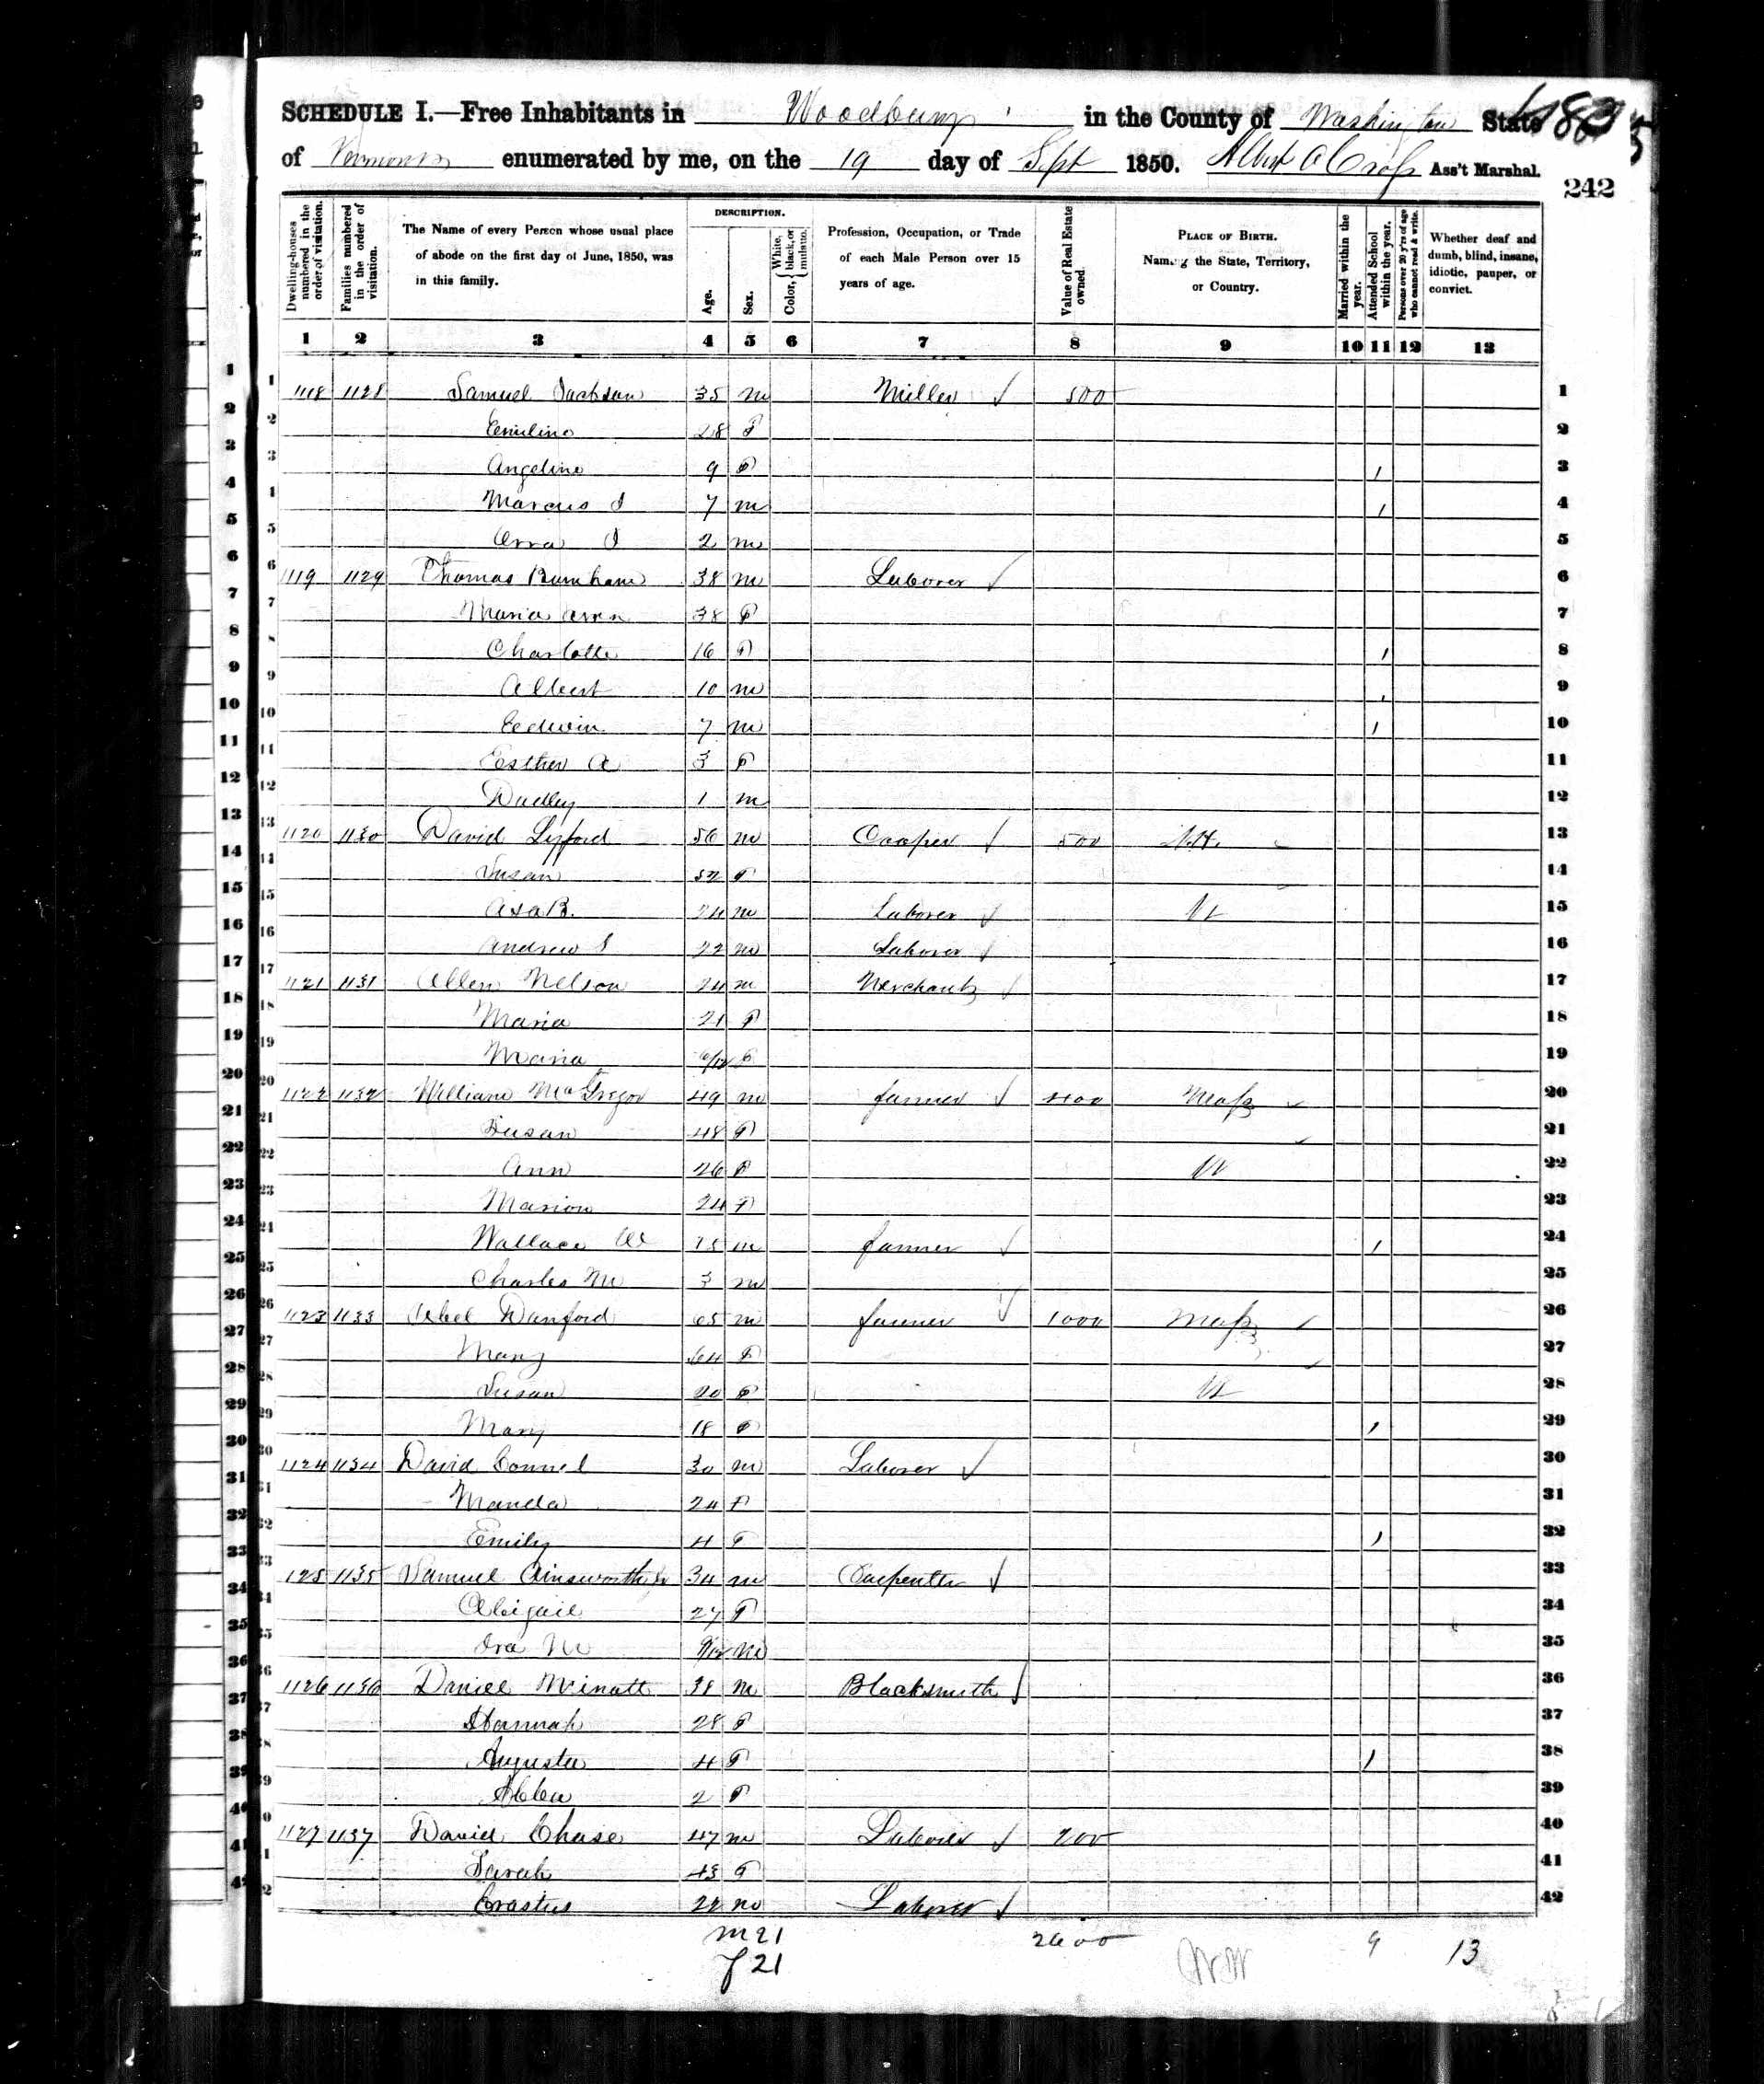 SCHEDULE I.—Free Inhabitants in Woodbury in the County of Washington State
of Vermont enumerated by me, on the 19 day of Sept 1850. Albert A Cross Ass't Marshal.
242
Dwelling-houses numbered in the order of visitation.
Families numbered in the order of visitation.
The Name of every Person whose usual place of abode on the first day of June, 1850, was in this family.
DESCRIPTION.
Age.
Sex.
Color, { White, black, or mulatto.
Profession, Occupation, or Trade of each Male Person over 15 years of age.
Value of Real Estate owned.
PLACE OF BIRTH. Naming the State, Territory, or Country.
Married within the year.
Attended School within the year.
Persons over 20 y'rs of age who cannot read & write.
Whether deaf and dumb, blind, insane, idiotic, pauper, or convict.
1 2 3 4 5 6 7 8 9 10 11 12 13
1 1118 1128 Samuel Jackson 35 m Miller 500 1
2 Emeline 28 F 2
3 Angeline 9 F 1 3
4 Marcus J 7 m 1 4
5 Orra J 2 m 5
6 1119 1129 Thomas Burnham 38 m Laborer 6
7 Maria Ann 38 F 7
8 Charlotte 16 F 1 8
9 Albert 10 m 1 9
10 Edwin 7 m 1 10
11 Esther A 3 F 11
12 Dudley 1 m 12
13 1120 1130 David Lyford 56 m Cooper 500 N.H. 13
14 Susan 52 F 14
15 Asa B. 24 m Laborer Vt 15
16 Andrew S 22 m Laborer 16
17 1121 1131 Allen Nelson 24 m Merchant 17
18 Maria 21 F 18
19 Maria /12 F 19
20 1122 1132 William McGregor 49 m farmer 400 Mass 20
21 Susan 48 F 21
22 Ann 26 F Vt 22
23 Marion 24 F 23
24 Wallace W 15 m farmer 1 24
25 Charles M 3 m 25
26 1123 1133 Abel Danford 65 m farmer 1000 Mass 26
27 Mary 64 F 27
28 Susan 20 F Vt 28
29 Mary 18 F 1 29
30 1124 1134 David Connel 30 m Laborer 30
31 Manda 24 F 31
32 Emily 4 F 1 32
33 1125 1135 Samuel Ainsworth Jr 34 m Carpenter 33
34 Abigail 27 F 34
35 Ira M 9/12 m 35
36 1126 1136 Daniel 38 m Blacksmith 36
37 Hannah 28 F 37
38 Augusta 4 F 1 38
39 2 F 39
40 1127 1137 David Chase 47 m Laborer 200 40
41 Sarah 43 F 41
42 Erastus 22 m Laborer 42
m 21 2600 9 13
f 21